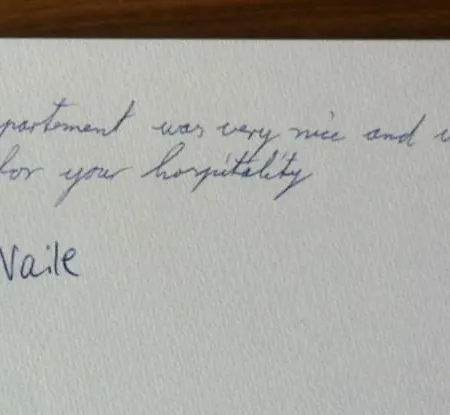 partement was very nice and
for your hospitality
Vaile